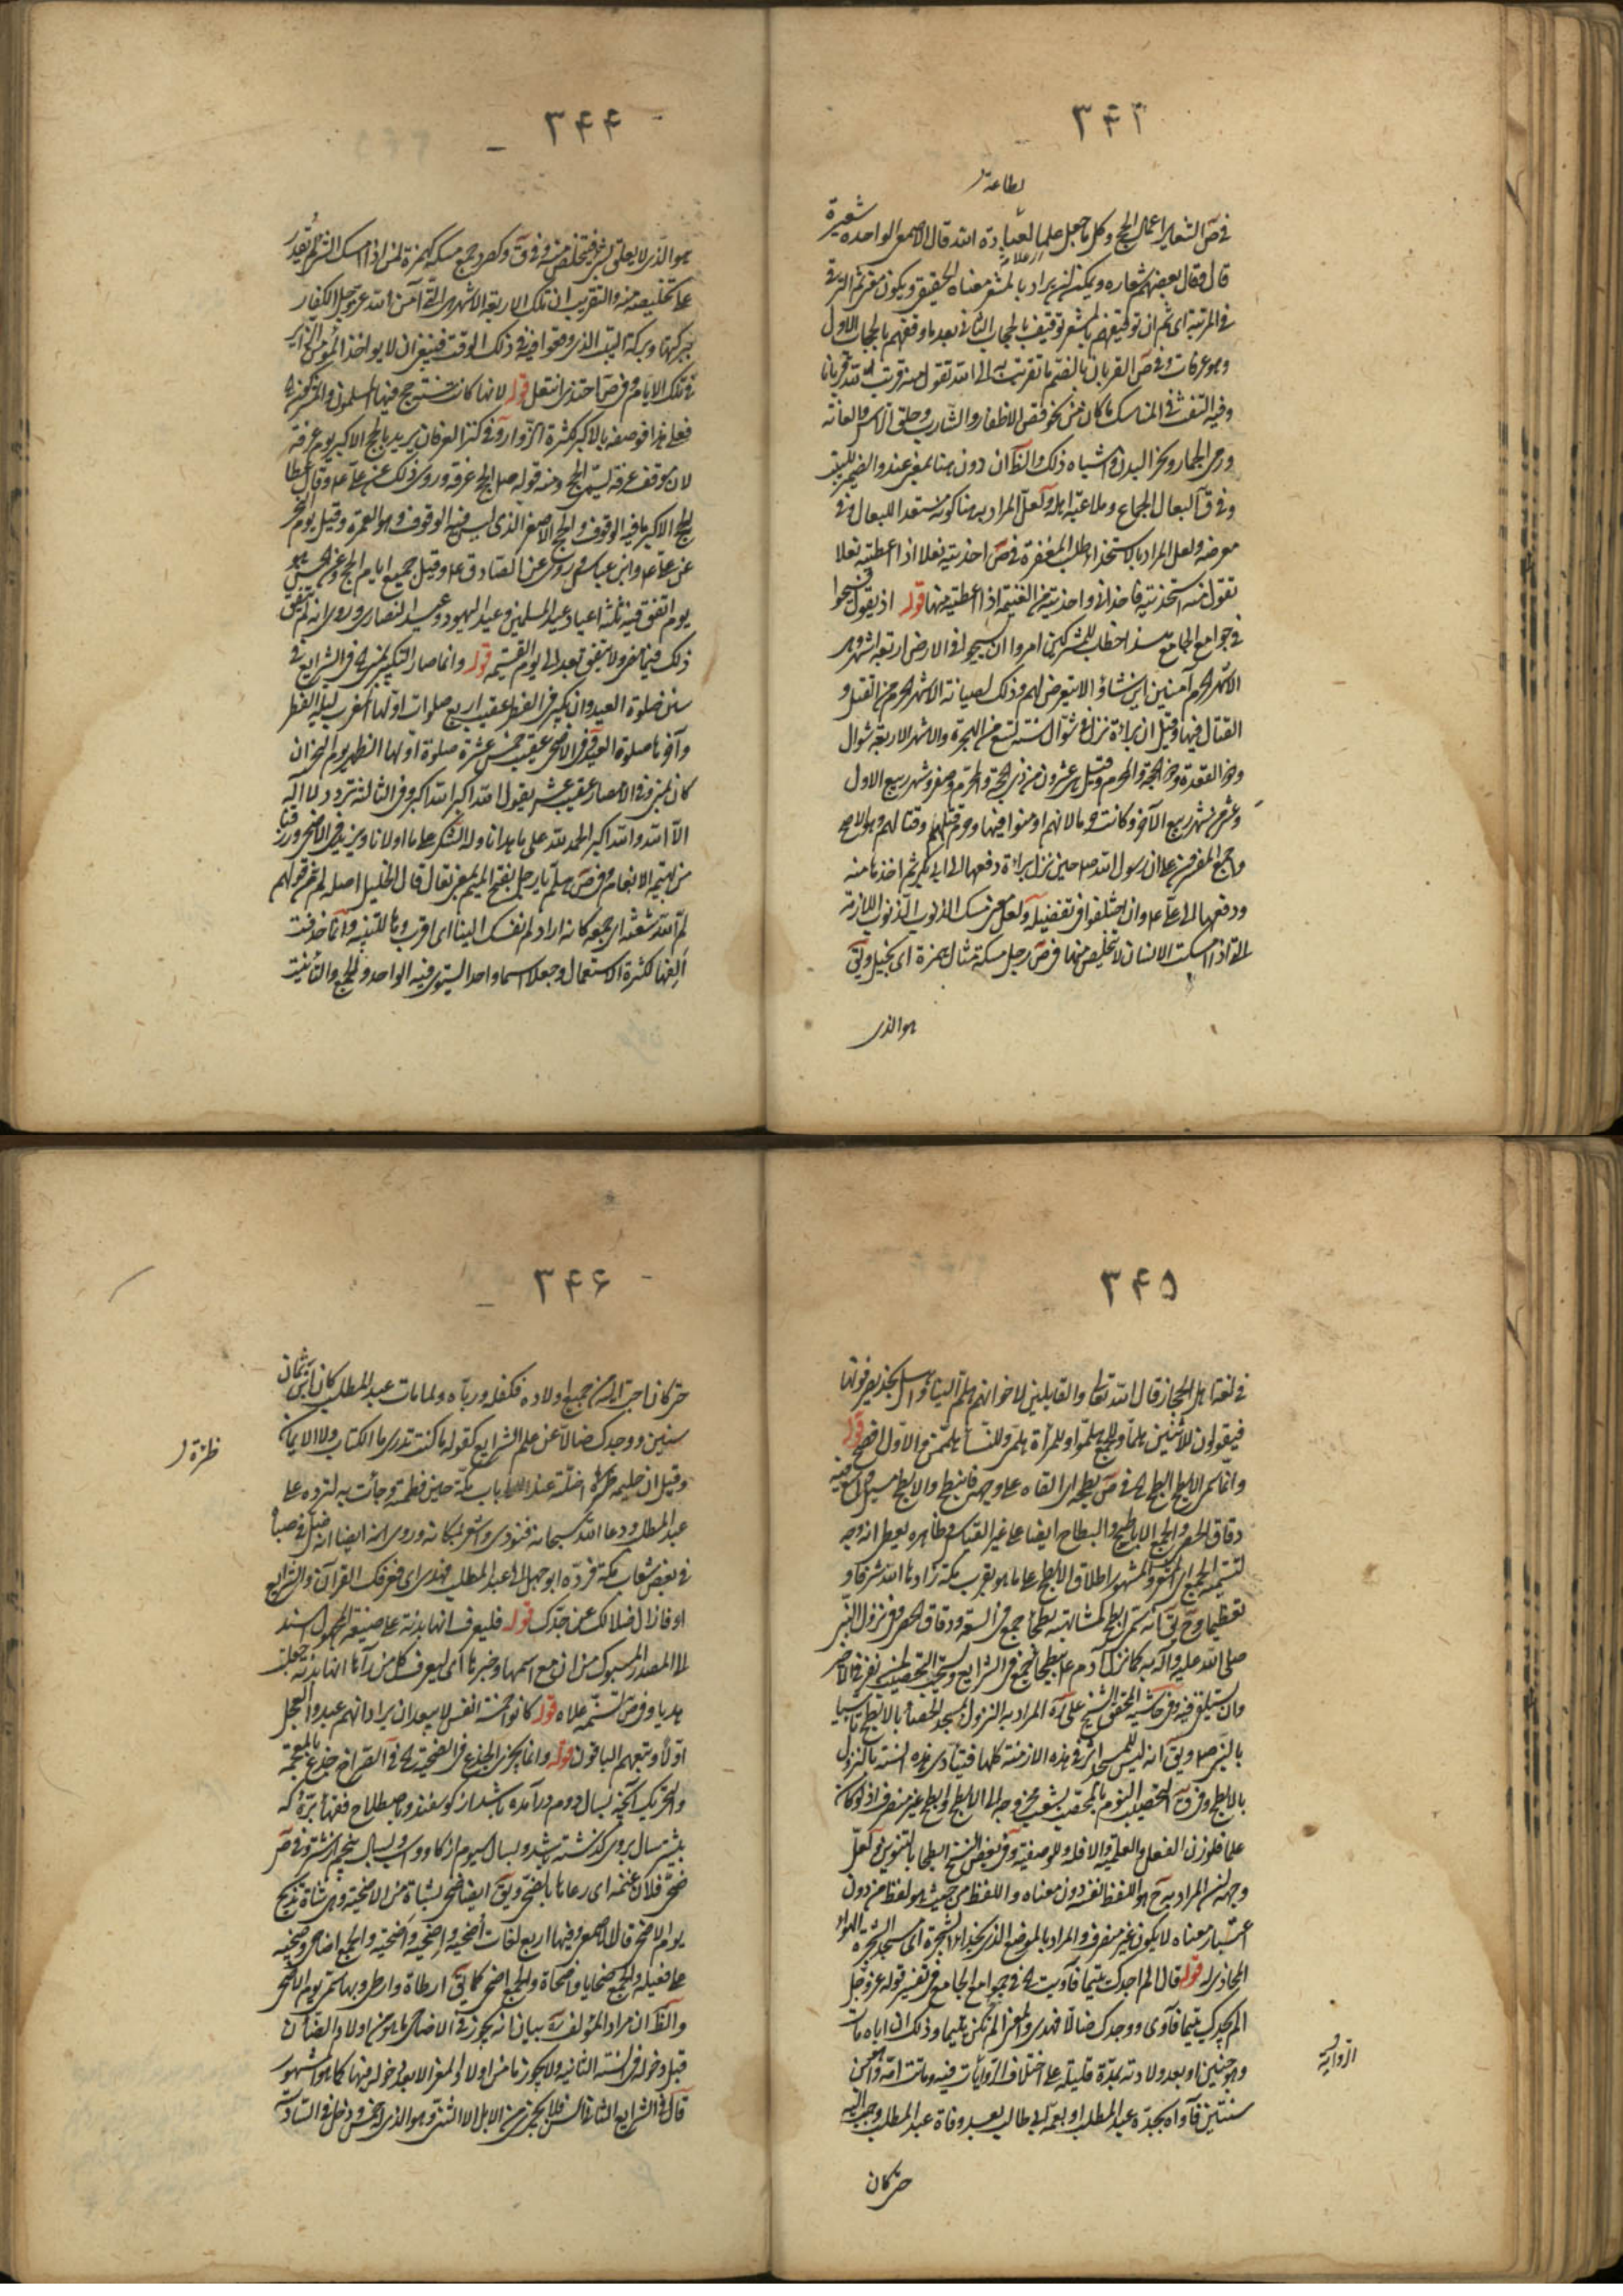 ٣۴٣
لطاعة
فى ص الشعاير اعمال الحج وكل ما جعل علما لعبادة الله قال الاصمعى الواحدة شعيرة
قال وقال بعضهم شعاره ويمكن ان يراد بالمشعر معناه الحقيقى ويكون ثم للترقى
فى المرتبة اى ثم ان توقيفهم بالمشعر توقيف بالحجاب الثانى بعد ما وقفهم بالحجاب الاول
وهو عرفات وفى ص القربان بالضم ما تقربت به الى الله تقول منه قربت لله قربانا
وفيه التفث فى المناسك ما كان من نحو قص الاظفار والشارب وحلق الراس والعانة
ورمى الجمار ونحر البدن واشباه ذلك والظ ان دون هنا بمعنى عند والضمير للبيت
وفى ق البعال الجماع وملاعبة اهله ولعل المراد به هنا كونه مستعدا للبعال وفى
معرضه ولعل المراد بالاستخذاء طلب المغفرة فى ص احذيته نعلا اذا اعطيته نعلا
تقول منه استحذيته فاحذانى واحذيته من الغنيمة اذا اعطيته منها قوله اذ يقول فسيحوا
فى جوامع الجامع هذا خطاب للمشركين امروا ان يسيحوا فى الارض اربعة اشهر وهى
الاشهر الحرم آمنين اين شاؤا لا يتعرض لهم وذلك لصيانة الاشهر الحرم من القتل و
القتال فيها وقيل ان براءة نزلت فى شوال سنة تسع من الهجرة والاشهر الاربعة شوال
وذو القعدة وذو الحجة والمحرم وقيل هى عشرون من ذى الحجة والمحرم وصفر وشهر ربيع الاول
وعشر من شهر ربيع الآخر وكانت حرما لانهم اومنوا فيها وحرم قتلهم وقتالهم وهو الاصح
واجمع المفسرون على ان رسول الله ص حين نزل براءة دفعها الى ابى بكر ثم اخذها منه
ودفعها الى على ع وان اختلفوا فى تفصيله ولعل معنى مسك الذنوب الذنوب اللازمة
التى اذا امسكت الانسان لا تخلص منها فى ص رجل مسكة مثال همزة اى بخيل ويق
هو الذى
٣۴۴
هو الذى لا يعلق بشئ فيتخلص منه وفى ق وكصرد جمع مسكة كهمزة لمن اذا امسك الشئ لم يقدر
على تخليصه منه والتقريب ان تلك الاربعة الاشهر هى التى آمن الله عز وجل الكفار
ببركتها وبركة البيت الذى وقعوا فيه فى ذلك الوقت فينبغى ان لا يواخذ المؤمن الزاير
فى تلك الايام وفى ص احتذى انتعل قوله لانها كانت سنة حج فيها المسلمون والمشركون
فعلى هذا فوصفه بالاكبر لكثرة الزوار وفى كنز العرفان يريد بالحج الاكبر يوم عرفة
لان موقف عرفة ليسمى الحج ومنه قوله ص الحج عرفة وروى ذلك عن على ع وقال عطا
الحج الاكبر ما فيه الوقوف والحج الاصغر الذى ليس فيه الوقوف وهو العمرة وقيل يوم النحر
عن على ع وابن عباس وروى عن الصادق ع وقيل جميع ايام الحج وعن الحسن هو
يوم اتفق فيه ثلثة اعياد عيد المسلمين وعيد اليهود وعيد النصارى وروى انه لم يتفق
ذلك فيما مضى ولا يتفق بعد الى يوم القيمة قوله وانما صار التكبير بمنى فى الشرايع فى
سنن صلوة العيد وان يكبر فى الفطر عقيب اربع صلوات اولها المغرب ليلة الفطر
وآخرها صلوة العيد وفى الاضحى عقيب خمس عشرة صلوة اولها الظهر يوم النحر ان
كان بمنى وفى الامصار عقيب عشر يقول الله اكبر الله اكبر وفى الثالثة تردد لا اله
الا الله والله اكبر الحمد لله على ما هدانا وله الشكر على ما اولانا ويزيد فى الاضحى ورزقنا
من بهيمة الانعام وفى ص هلم يا رجل بفتح الميم بمعنى تعال قال الخليل اصله لم من قولهم
لم الله شعثه اى جمعه كانه اراد لم نفسك الينا اى اقرب وها للتنبيه وانما حذفت
الفها لكثرة الاستعمال وجعلا اسما واحدا ليستوى فيه الواحد والجمع والتانيث
٣۴۵
فى لغة اهل الحجاز قال الله تعالى والقايلين لاخوانهم هلم الينا واهل نجد يصرفونها
فيقولون للاثنين هلما وللجمع هلموا وللمرأة هلمى وللنساء هلممن والاول افصح قوله
وانما سمى الابطح ابطح فى ص بطحه اى القاه على وجهه فانبطح والابطح مسيل واسع فيه
دقاق الحصى والجمع الاباطح والبطاح ايضا على غير القياس وظاهره يعطى انه وجه
لتسمية الجمع اى المشعر والمشهور اطلاق الابطح على ما هو بقرب مكة زادها الله شرفا و
تعظيما وح يق انه سمى ابطح لمشابهته بطحاء جمع فى السعة ودقاق الحصى وفى نزول النبى
صلى الله عليه وآله به كما نزل آدم ع ببطحاء جمع فى الشرايع ويستحب التحصيب لمن نفر فى الاخير
وان يستلقى فيه وفى حاشية المحقق الشيخ على ره المراد به النزول بمسجد الحصباء بالابطح تاسيا
بالنبى ص ويق انه ليس للمسجد اثر فى هذه الازمنة كلها فيتادى هذه السنة بالنزول
بالابطح وفى ق التحصيب النوم بالمحصب الشعب مخرجه الى الابطح وابطح غير منصرف اذ لو كان
علما فلوزن الفعل والعلمية والا فله وللوصفية وفى بعض النسخ ابطحا بالتنوين ولعل
وجهه ان المراد به ح هو اللفظ نفسه دون معناه واللفظ من حيث هو لفظ من دون
اعتبار معناه لا يكون غير منصرف والمراد بالموضع الذى بحذاء الشجرة اى مسجد الشجرة الهواء
المحاذى له قوله قال الم اجدك يتيما فآويت فى جوامع الجامع فى تفسير قوله عز وجل
الم يجدك يتيما فآوى ووجدك ضالا فهدى والمعنى الم تكن يتيما وذلك ان اباه مات
وهو جنين او بعد ولادته بمدة قليلة على اختلاف الروايات فيه وماتت امه وهو ابن
الرواية
سنتين فآواه بجده عبد المطلب او بعمه ابى طالب بعد وفاة عبد المطلب وحببه اليه
حتى كان
٣۴۶
حتى كان احب اليه من جميع اولاده فكفله ورباه ولما مات عبد المطلب كان ابن ثمان
سنين ووجدك ضالا عن علم الشرايع كقوله ما كنت تدرى ما الكتاب ولا الايمان
وقيل ان حليمة ظئره اضلته عند باب مكة حين فطمته وجاءت به لترده على
ظئرة
عبد المطلب ودعا الله سبحانه فنودى واشعر بمكانه وروى انه ايضا انه ضل فى صباه
فى بعض شعاب مكة فرده ابو جهل الى عبد المطلب فهدى اى فعرفك القرآن والشرايع
او فازال ضلالك عن جدك قوله فليعرف انها بدنة على صيغة المجهول اسند
الى المصدر المسبوك من ان مع اسمها وخبرها اى ليعرف كل من رآها انها بدنة جعلت
هديا وفى ص تسنمه علاه قوله كانوا خمسة انفس لا يبعد ان يراد انهم عبدوا العجل
اولا وتبعهم الباقون قوله وانما يجزى الجذع فى الضحية فى الصراح جذع بالمعجمة
والتحريك آنچه بسال دوم درآمده باشد از كوسفند وباصطلاح فقها بره كه
بيشتر سال بروى كذشته باشد وبسال سيوم از كاو واسب وبسال پنجم از شتر وفى ص
ضحى فلان غنمه اى رعاها بالضحى ويق ايضا ضحى بشاة من الاضحية وهى شاة تذبح
يوم الاضحى قال الاصمعى وفيها اربع لغات اضحية واضحية والجمع اضاحى وضحية
على فعيلة والجمع ضحايا واضحاة والجمع اضحى كما يق ارطاة وارطى وبها سمى يوم الاضحى
والظ ان مراد المؤلف ره بيان انه يجوز فى الاضاحى ما هو من اولاد الضأن
قبل دخوله فى السنة الثانية ولا يجوز ما من اولاد المعز الا بعد دخوله فيها كما هو المشهور
قال فى الشرايع الثانى السن فلا يجزى من الابل الا الثنى وهو الذى له خمس ودخل فى السادسة